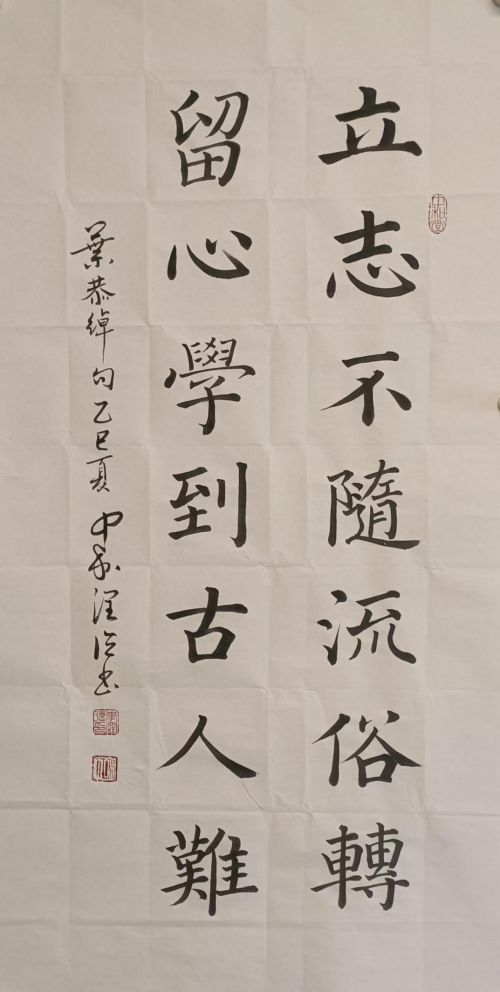 立志不隨流俗轉
留心學到古人難
葉恭綽句乙巳夏中和潤德書
中和堂